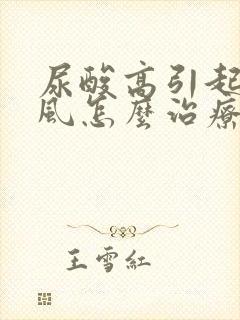 尿酸高引起
風怎麼治療
王雪紅